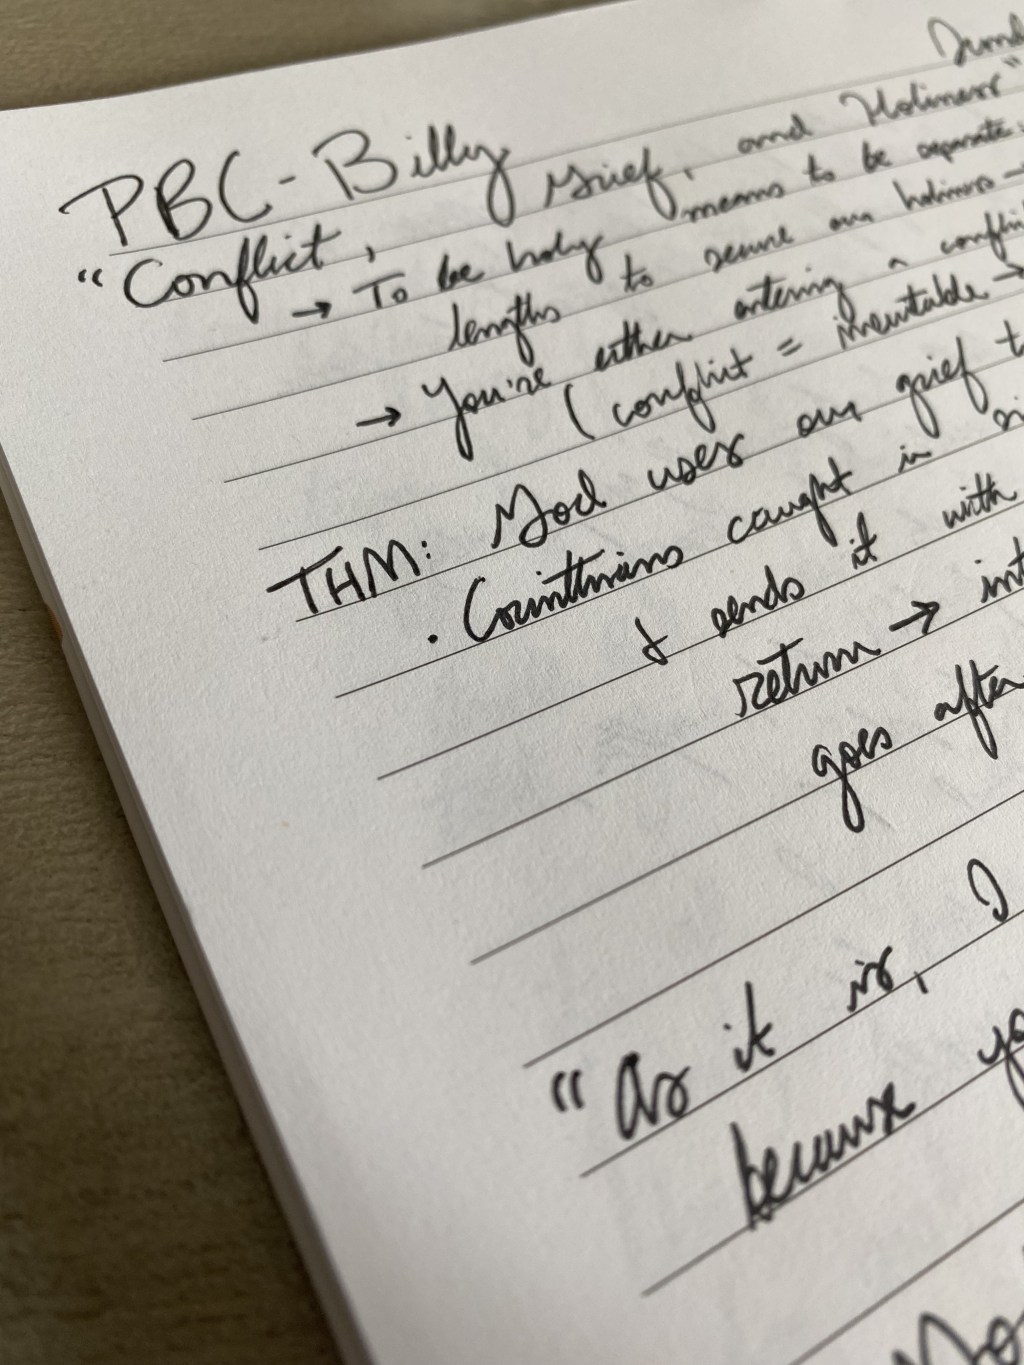 PBC - Billy
"Conflict, Grief, and Holiness"
→ To be holy means to be separate
lengths to secure our holiness →
→ You're either entering a
( conflict = inevitable →
THM: God uses our grief
• Corinthians caught in
& sends it with
return →
goes after
"As it is, I
because